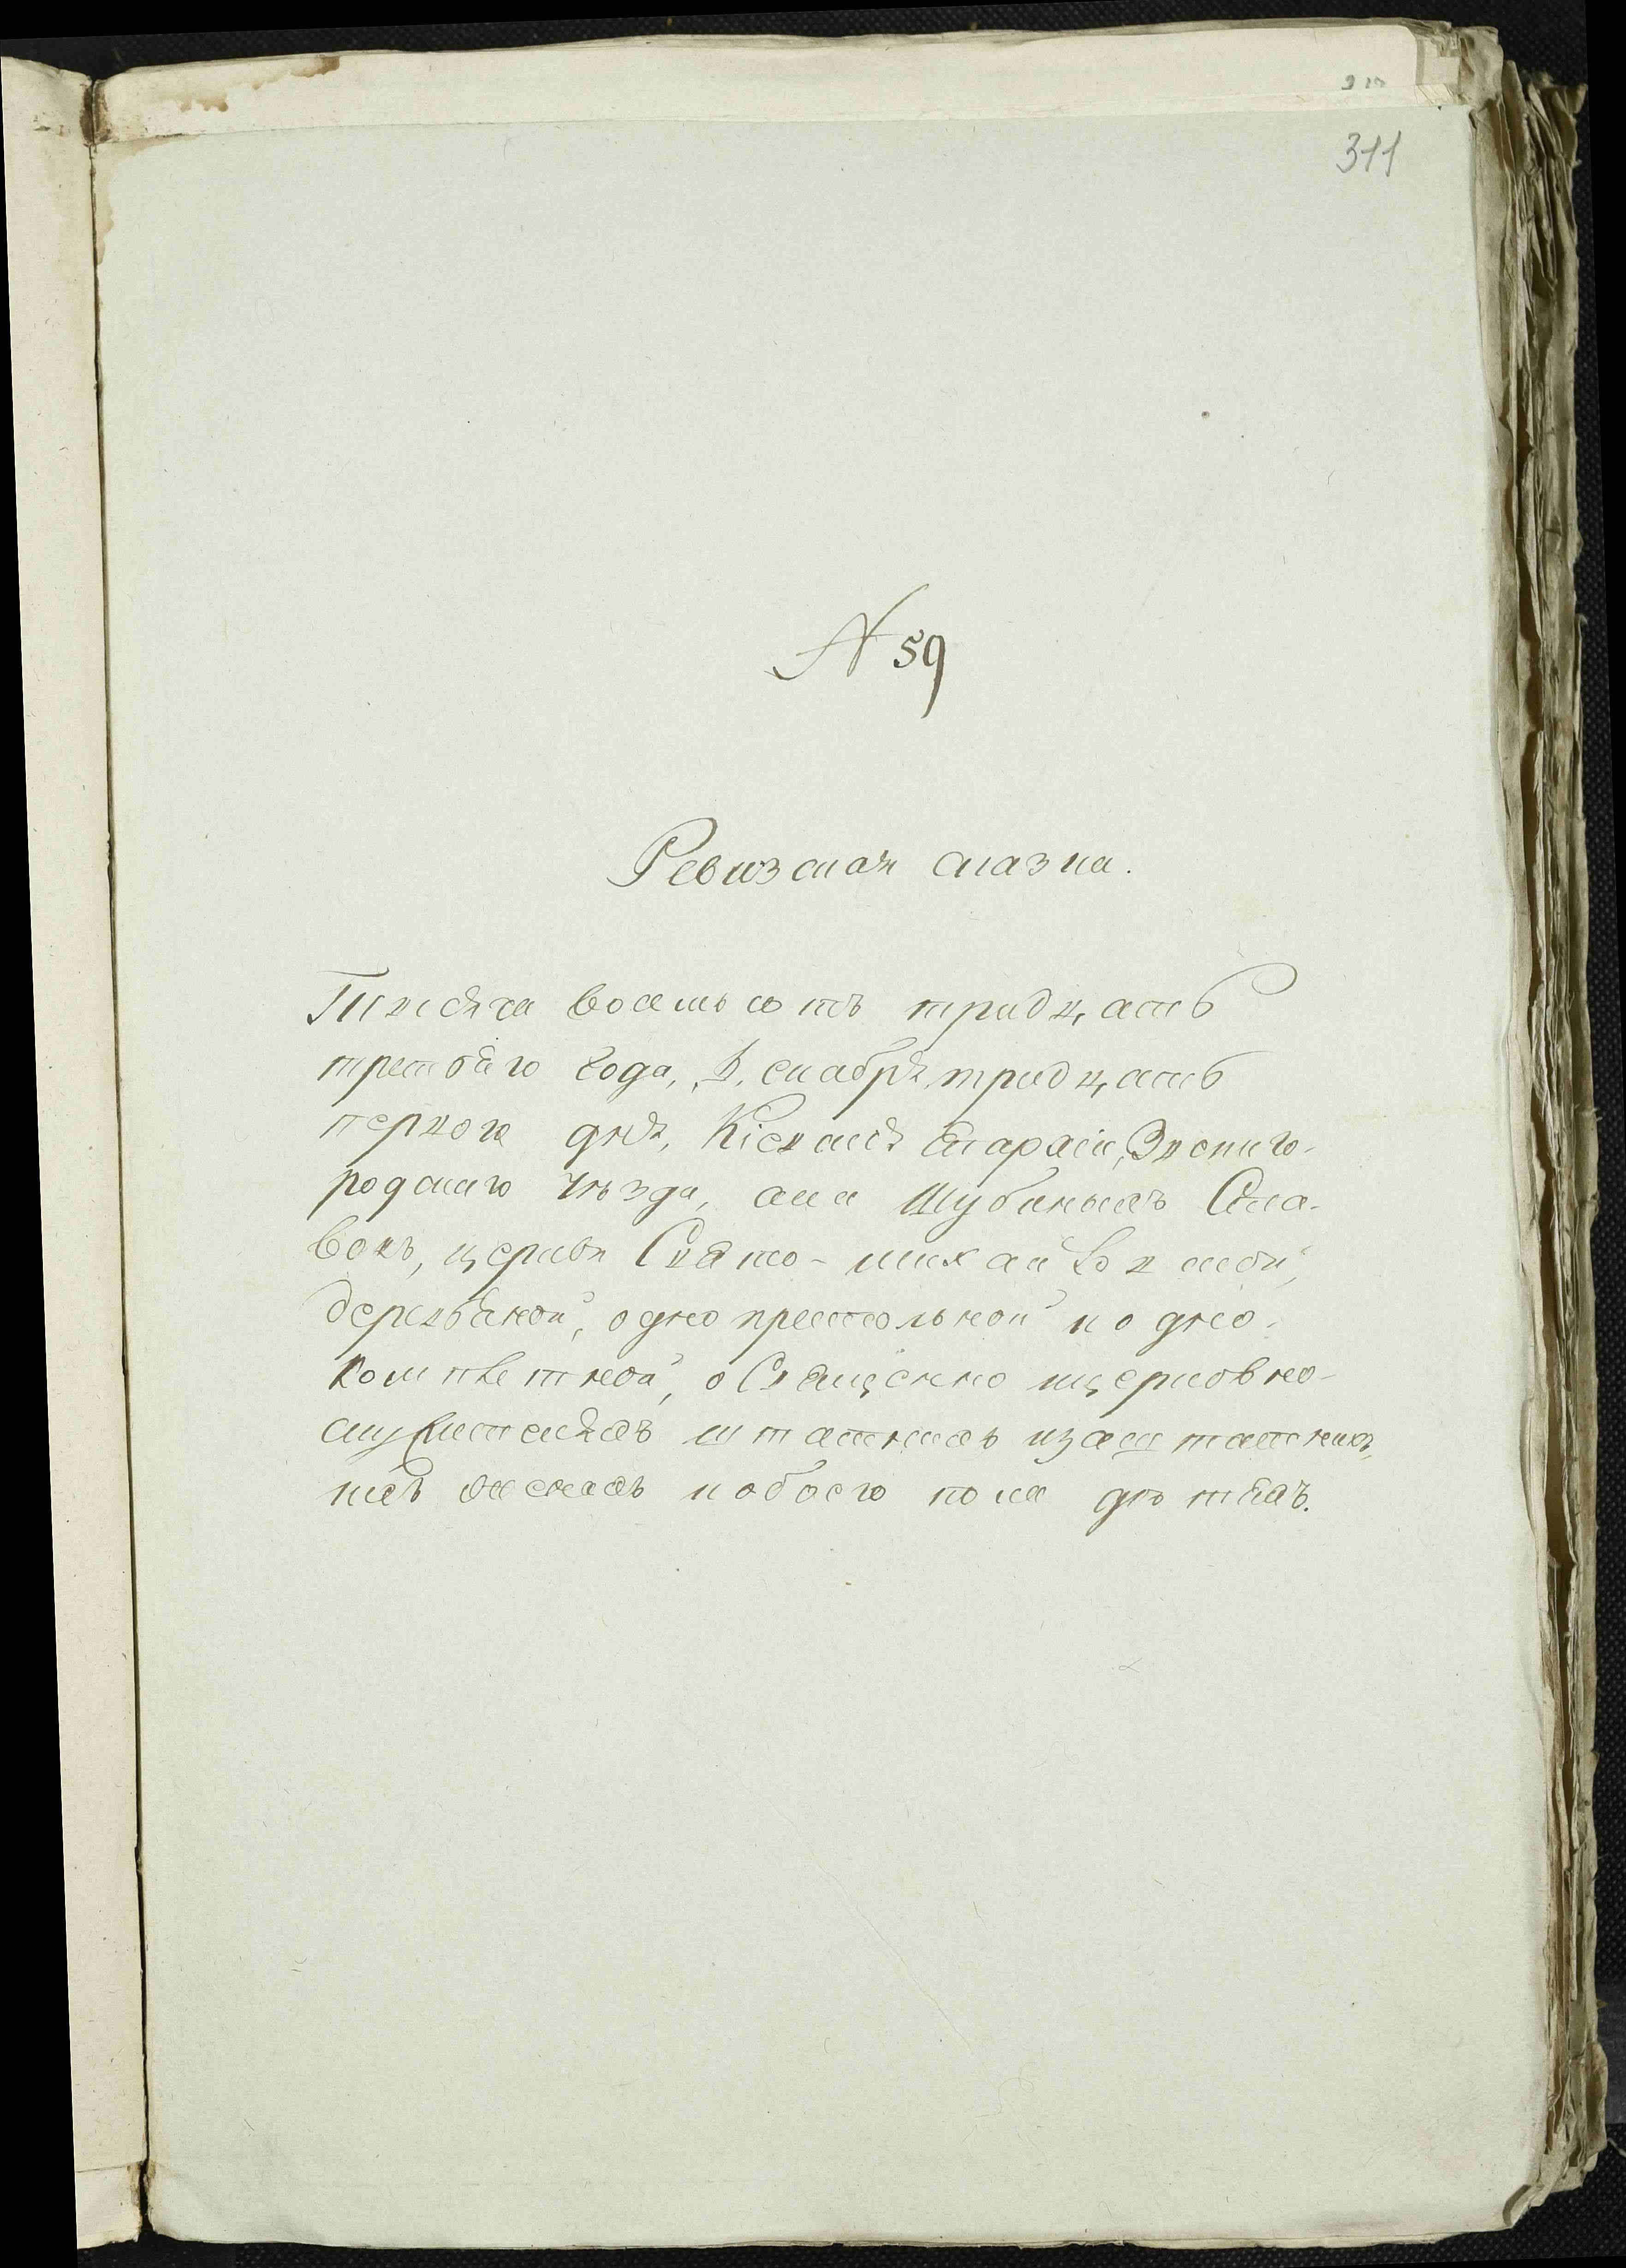 311
№ 59
Ревизская сказка.
Тысяча восемьсотъ тридцать
третьяго года, Декабря тридцать
перваго дня, Кіевскія Епархіи, Звениго-
родскаго уѣзда, села Шубиныхъ Ста-
вовъ, церкви Свято-михайловской,
деревяной, однопрестольной и одно-
комплетной, о Священно и церковно-
служителяхъ штатныхъ и заштатныхъ,
ихъ женахъ и обоего пола дѣтяхъ.